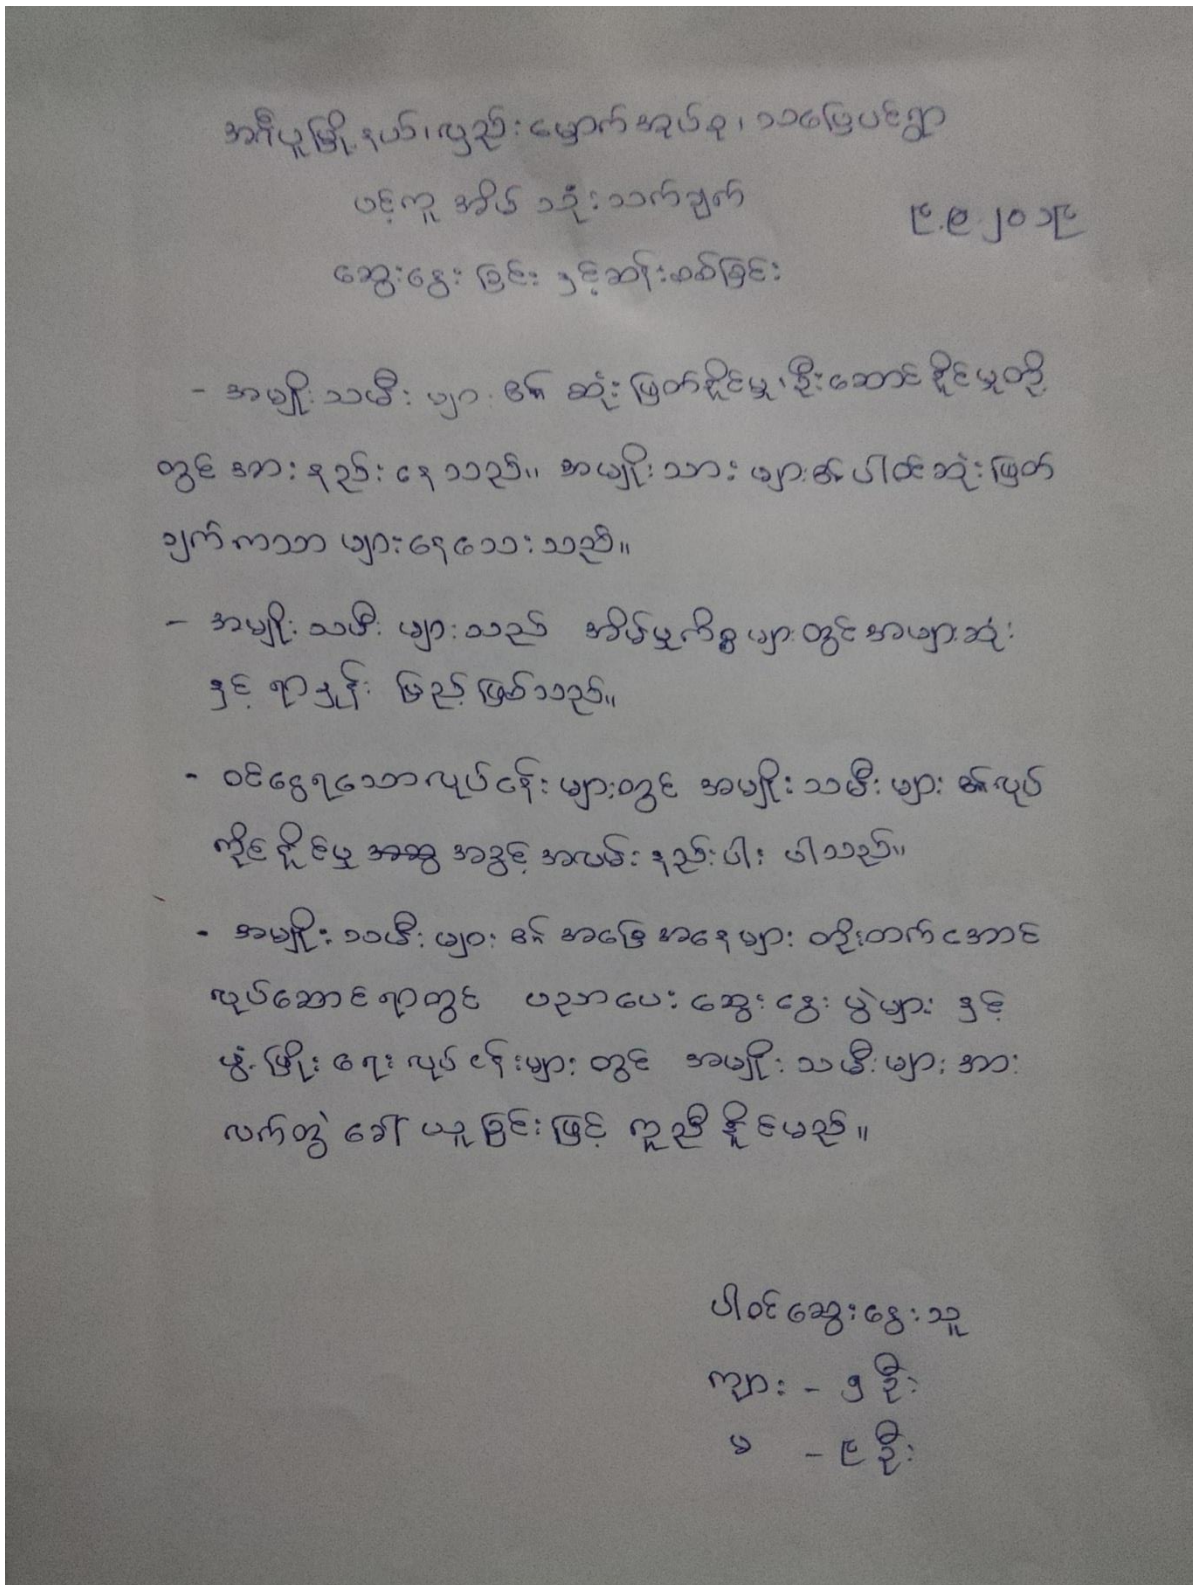 အင်္ဂပူမြို့နယ်၊လှည်းမှောက်အုပ်စု၊သဖြေပင်ရွာ
ပင့်ကူ အိမ် သုံးသက်ချက်
၉.၉.၂၀၁၉
ဆွေးနွေးခြင်း နှင့်ဆန်းစစ်ခြင်း
- အမျိုးသမီးများ ၏ ဆုံးဖြတ်နိုင်မှု၊ဦးဆောင်နိုင်မှုတို့
တွင် အားနည်းနေသည်။ အမျိုးသားများ၏ပါဝင်ဆုံးဖြတ်
ချက်ကသာ များနေသေးသည်။
- အမျိုးသမီးများသည် အိမ်မှုကိစ္စများတွင်အများဆုံး
နှင့် ရာနှုန်းပြည့်ဖြစ်သည်။
- ဝင်ငွေရသောလုပ်ငန်းများတွင် အမျိုးသမီးများ ၏လုပ်
ကိုင်နိုင်မှု အခွင့်အလမ်းနည်းပါး ပါသည်။
- အမျိုးသမီးများ ၏ အခြေအနေများ တိုးတက်အောင်
လုပ်ဆောင်ရာတွင် ပညာပေး ဆွေးနွေးပွဲများ နှင့်
ဖွံ့ဖြိုးရေးလုပ်ငန်းများ တွင် အမျိုးသမီးများအား
လက်တွဲ ခေါ်ယူခြင်းဖြင့် ကူညီနိုင်မည်။
ပါဝင်ဆွေးနွေးသူ
ကျား - ၅ ဦး
မ - ၉ ဦး